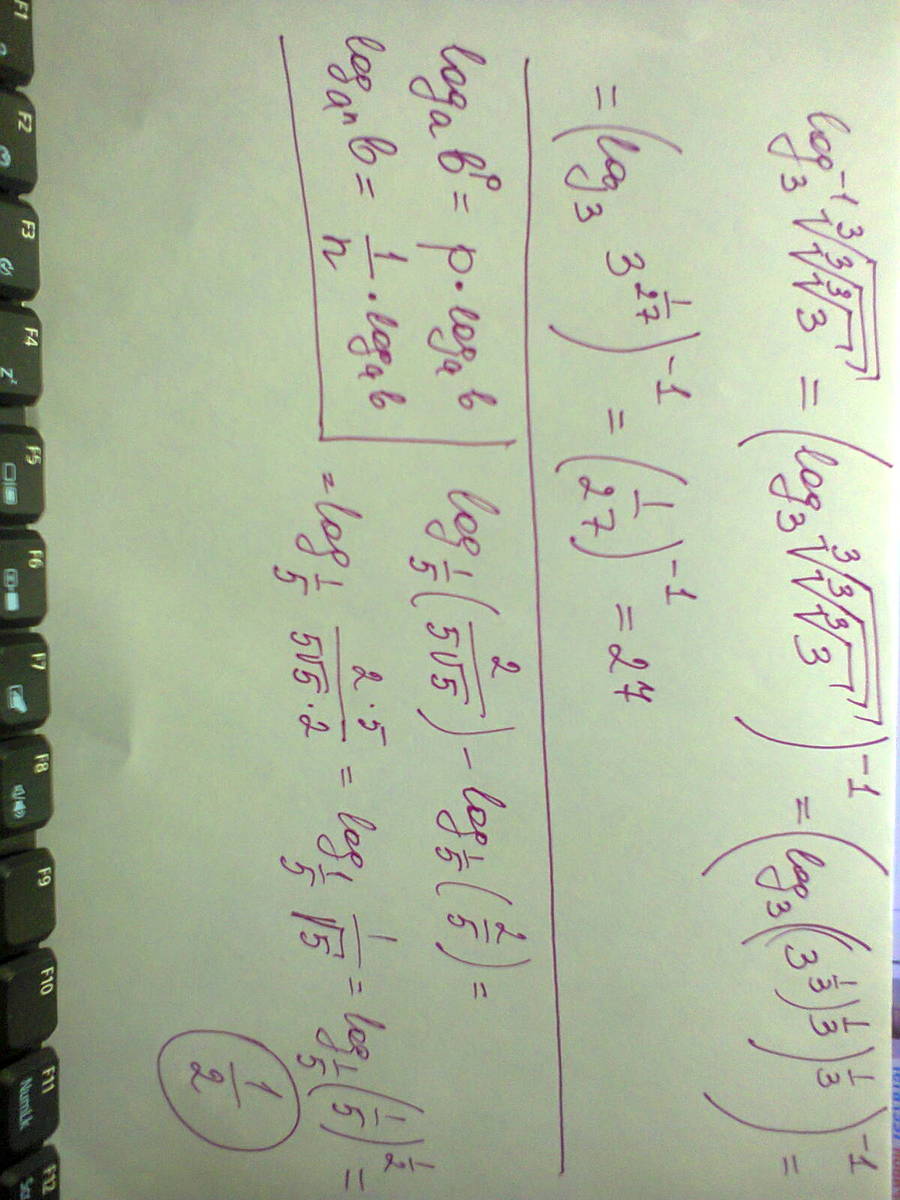 log₃⁻¹ ∛∛∛3 = (log₃ ∛∛∛3)⁻¹ = (log₃ ((3^(1/3))^(1/3))^(1/3))⁻¹ =
= (log₃ 3^(1/27))⁻¹ = (1/27)⁻¹ = 27
logₐ b^p = p · logₐ b
log_(aⁿ) b = 1/n · logₐ b
log_(1/5) (2/(5√5)) − log_(1/5) (2/5) =
= log_(1/5) (2·5)/(5√5·2) = log_(1/5) 1/√5 = log_(1/5) (1/5)^(1/2) =
1/2
F1
F2
F3
F4
F5
F6
F7
F8
F9
F10
F11
F12
zᶻ
NumLk